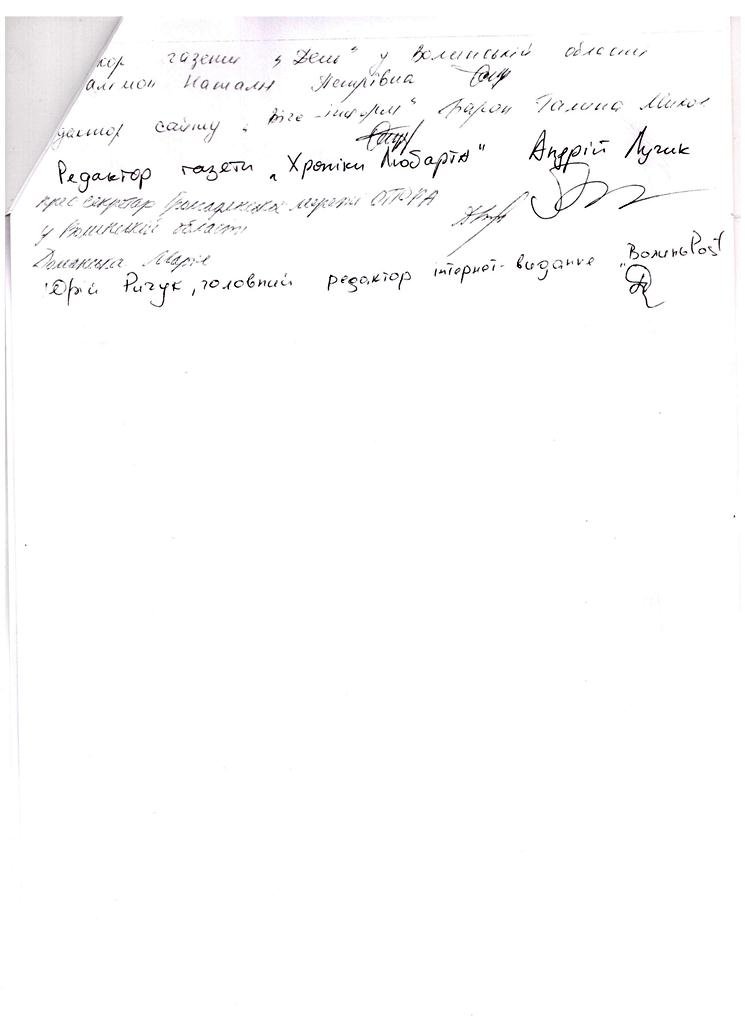 кор газети „День" у Волинській області
алімон Наталія Петрівна
дактор сайту „Віче-інформ"
Редактор газети „Хроніки Любарта" Андрій Лучик
прес секретар Громадянської мережі ОПОРА
у Волинській області
Доманська Марія
Юрій Ричук, головний редактор інтернет-видання „ВолиньPost"